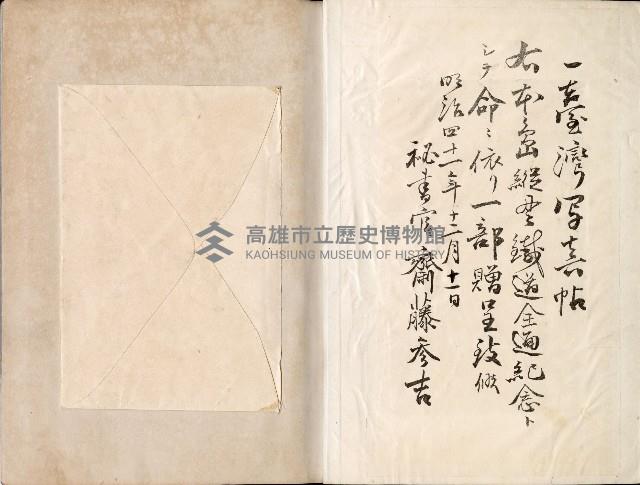 一臺灣写真帖
右本島縦貫鐵道全通紀念ト
シテ命ニ依リ一部贈呈致候
明治四十一年十二月十一日
秘書官齋藤参吉
高雄市立歷史博物館
KAOHSIUNG MUSEUM OF HISTORY